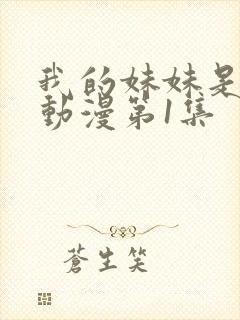 我的妹妹是
動漫第1集
蒼生笑